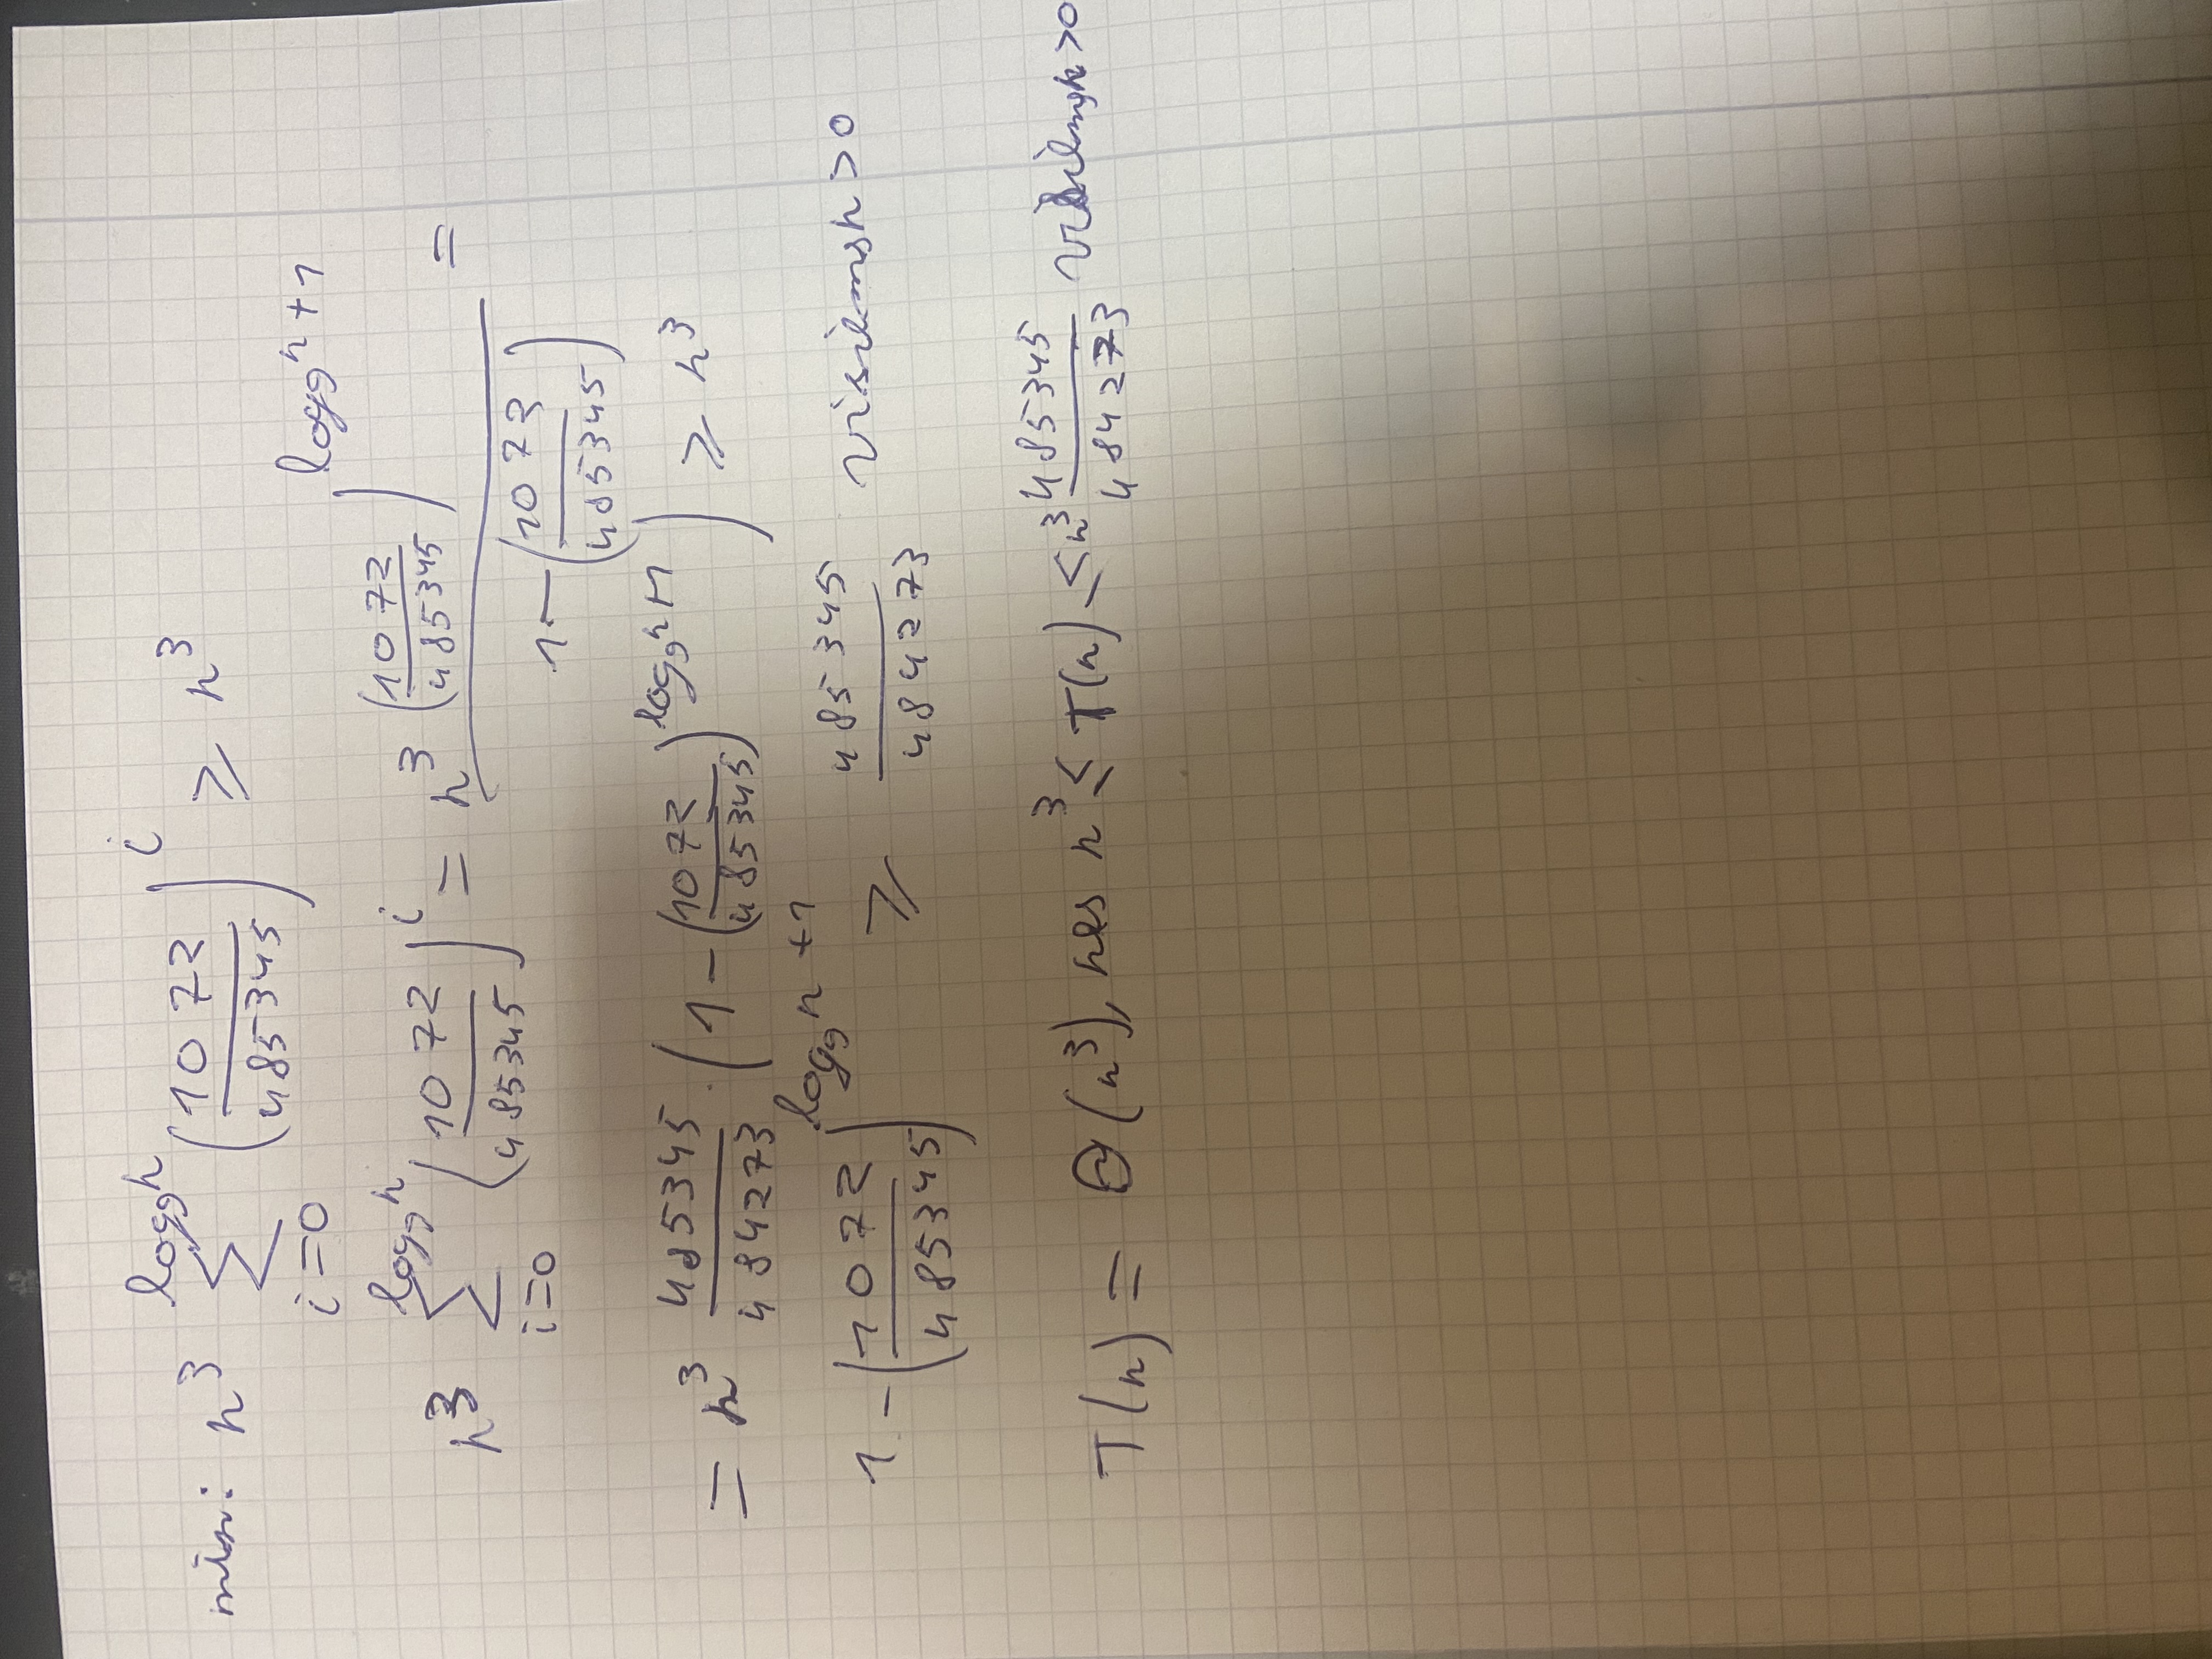 n³ ∑_{i=0}^{log₉n} (1072/485345)^i ≥ n³
n³ ∑_{i=0}^{log₉n} (1072/485345)^i = n³ (1072/485345)^{log₉n+1} / 1-(1073/485345) =
= n³ 485345/484273 · (1-(1072/485345)^{log₉n+1}) ≥ n³
1-(1072/485345)^{log₉n+1} ≥ 485345/484273 visiems n>0
T(n) = Θ(n³), nes n³ ≤ T(n) ≤ n³ 485345/484273 visiems n>0